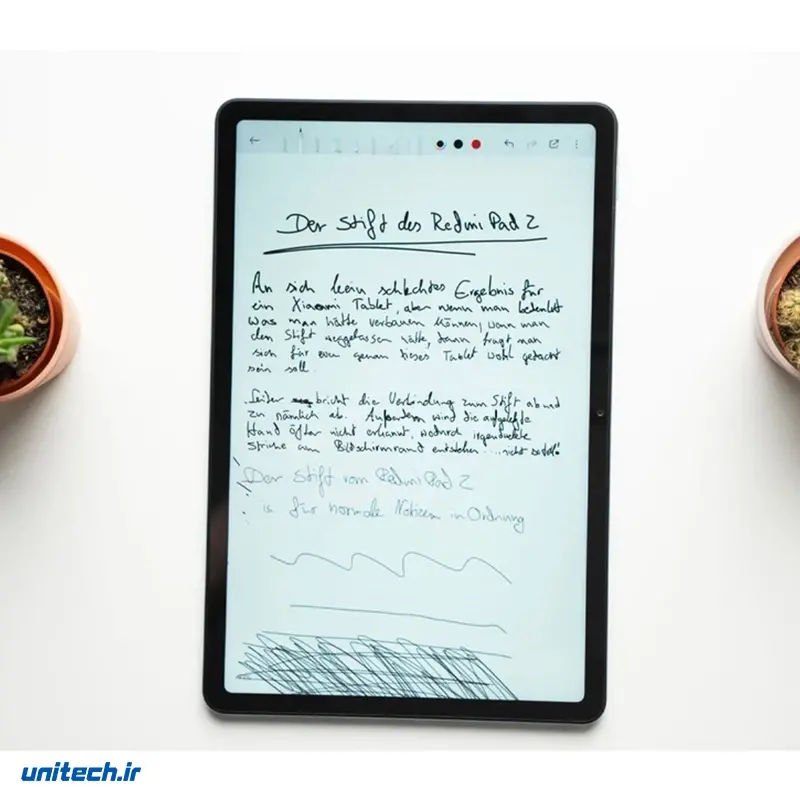 Der Stift des Redmi Pad 2
An sich kein schlechtes Ergebnis für
ein Xiaomi Tablet, aber wenn man bedenkt
was man hätte verbauen können, wenn man
den Stift weggelassen hätte, dann fragt man
sich für wen genau dieses Tablet wohl gedacht
sein soll.
Leider bricht die Verbindung zum Stift ab und
zu nämlich ab. Außerdem wird die aufgelegte
Hand öfter nicht erkannt, wodurch irgendwelche
Striche am Bildschirmrand entstehen....nicht
Der Stift vom Redmi Pad 2
is für normale Notizen in Ordnung
unitech.ir